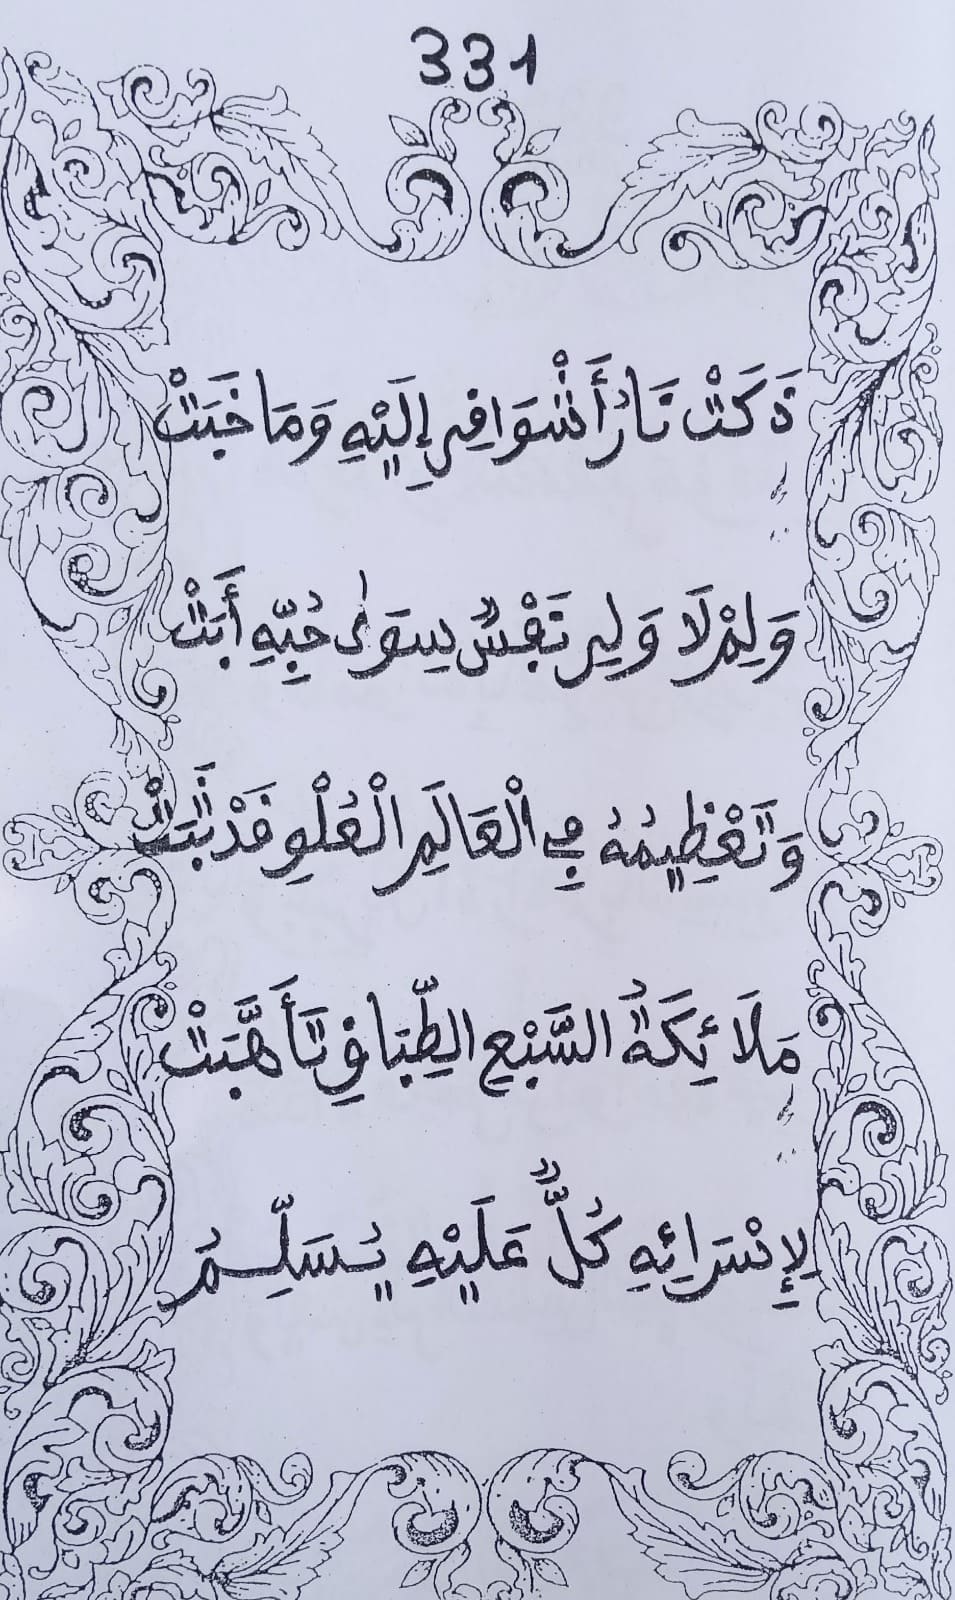 331
ذَكَتْ نَارُ أَشْوَاقِي إِلَيْهِ وَمَا خَبَتْ
وَلِمْ لَا وَلِي نَفْسٌ سِوَىٰ حُبِّهِ أَبَتْ
وَتَعْظِيمُهُ فِي الْعَالَمِ الْعُلْوِ قَدْ ثَبَتْ
مَلَائِكَةُ السَّبْعِ الطِّبَاقِ تَأَهَّبَتْ
لِإِسْرَائِهِ كُلٌّ عَلَيْهِ يُسَلِّمُ